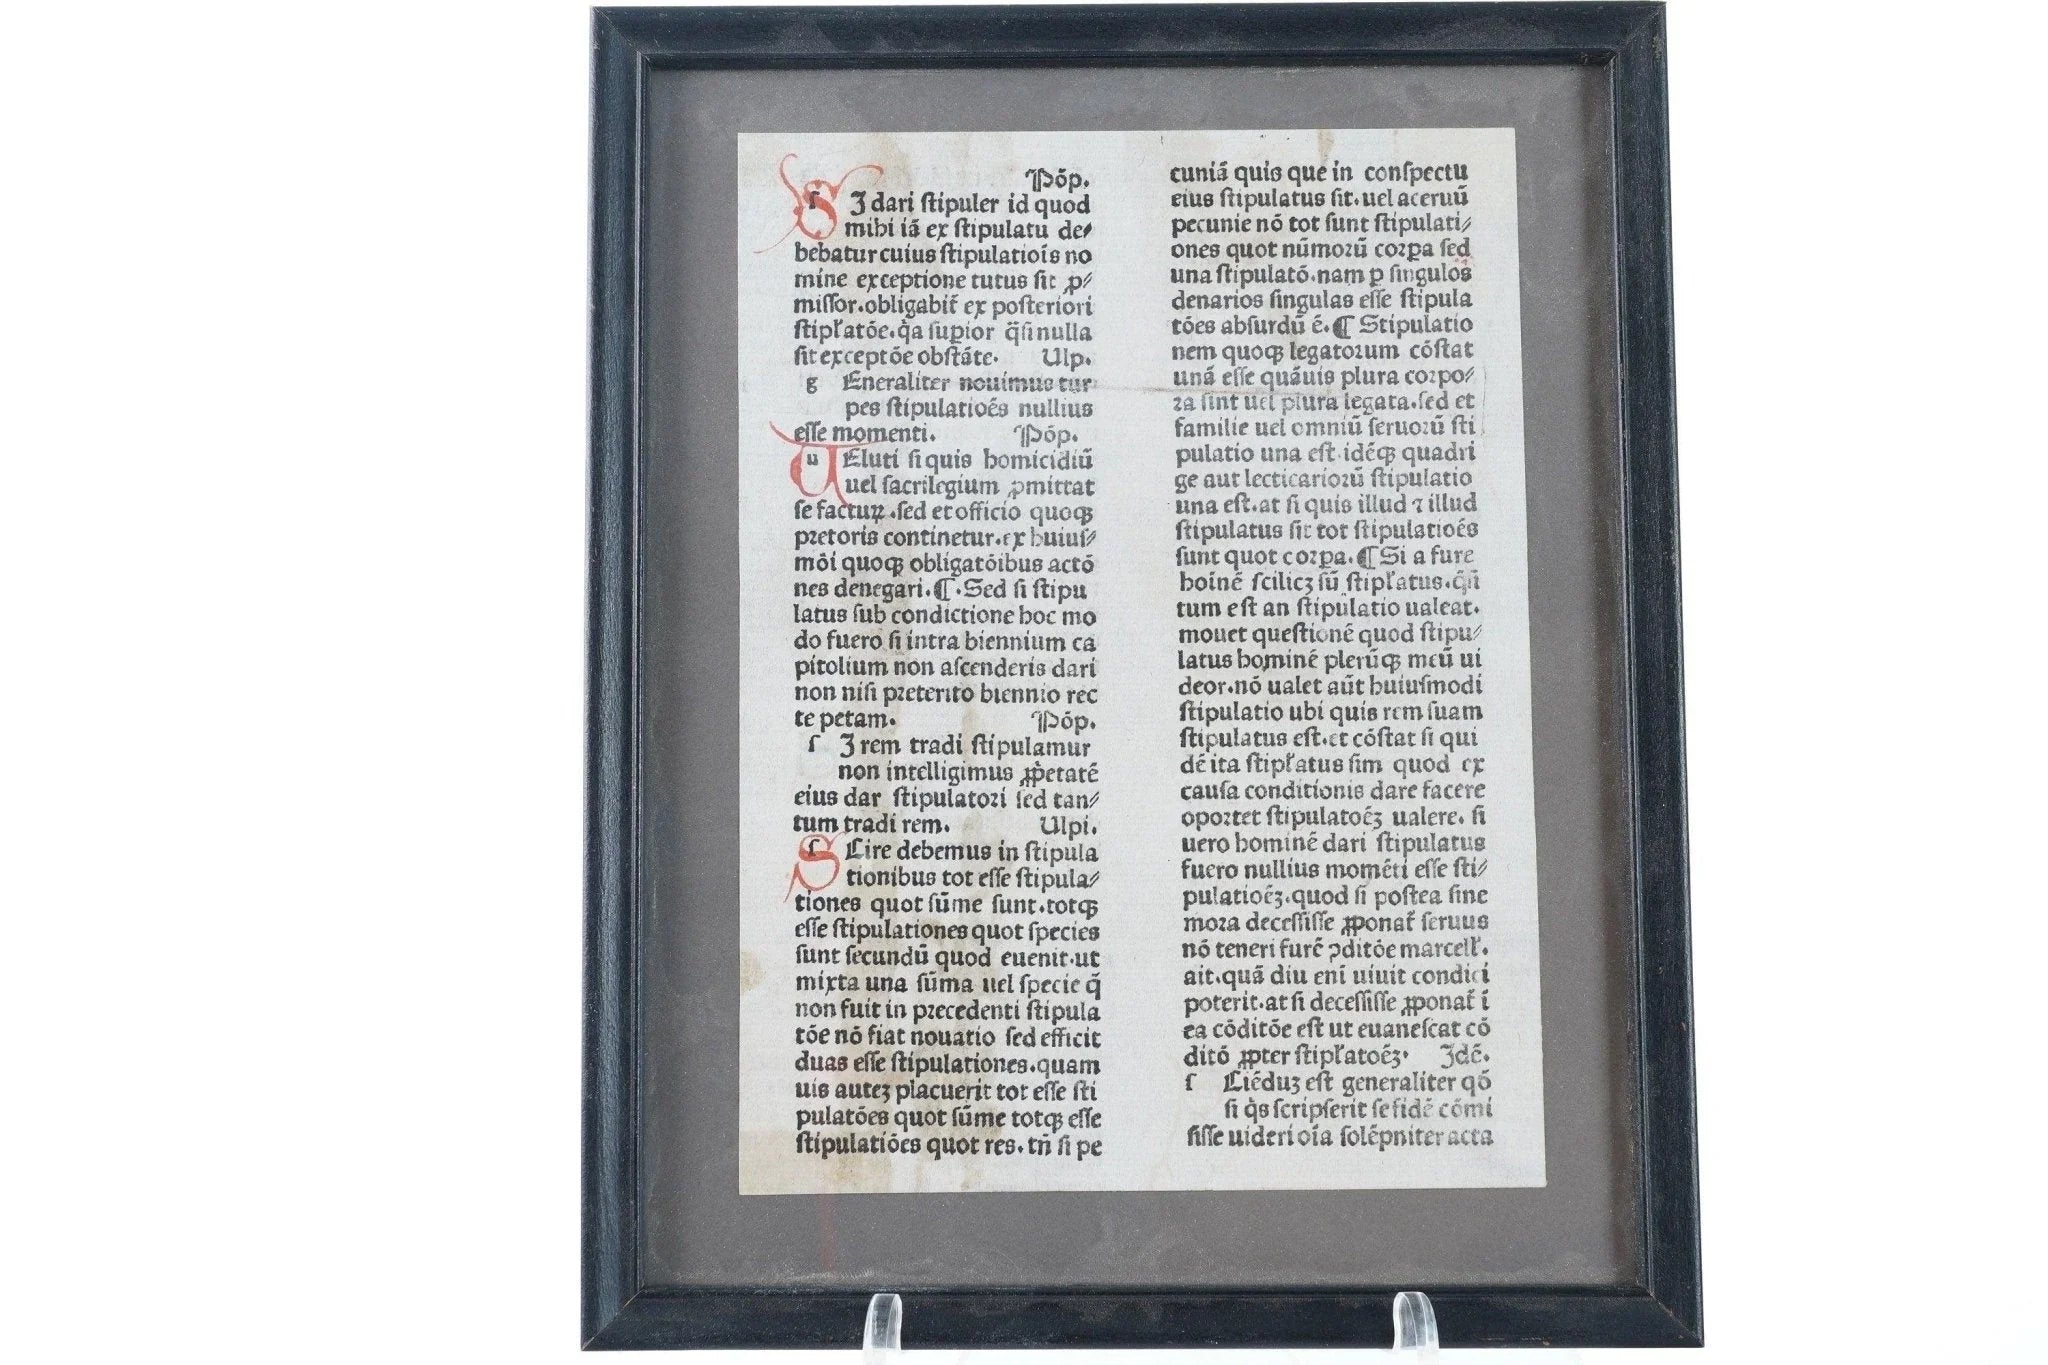 Põp.
SI dari ſtipuler id quod
mihi iã ex ſtipulatu de⸗
bebatur cuius ſtipulatiõis no
mine exceptione tutus ſit ꝓ⸗
miſſor.obligabit̃ ex poſteriori
ſtipl̃atõe.q̃a ſuꝑior q̃ſi nulla
ſit exceptõe obſtãte. Ulp.
g Eneraliter nouimus tur
pes ſtipulatioẽs nullius
eſſe momenti. Põp.
u Eluti ſi quis homicidiũ
uel ſacrilegium ꝓmittat
ſe facturꝫ.ſed et officio quoqꝫ
pꝛetoris continetur.ex huiuſ⸗
mõi quoqꝫ obligatõibus actõ
nes denegari.¶.Sed ſi ſtipu
latus ſub condictione hoc mo
do fuero ſi intra biennium ca
pitolium non aſcenderis dari
non niſi pꝛeterito biennio rec
te petam. Põp.
ſ I rem tradi ſtipulamur
non intelligimus ꝓpꝛetatẽ
eius dar ſtipulatoꝛi ſed tan⸗
tum tradi rem. Ulpi.
ſ Cire debemus in ſtipula
tionibus tot eſſe ſtipula⸗
tiones quot ſũme ſunt.totqꝫ
eſſe ſtipulationes quot ſpecies
ſunt ſecundũ quod euenit.ut
mixta una ſũma uel ſpecie q̃
non fuit in pꝛecedenti ſtipula
tõe nõ fiat nouatio ſed efficit
duas eſſe ſtipulationes.quam
uis auteꝫ placuerit tot eſſe ſti
pulatões quot ſũme totqꝫ eſſe
ſtipulatiões quot res.tñ ſi pe
cuniã quis que in conſpectu
eius ſtipulatus ſit.uel aceruũ
pecunie nõ tot ſunt ſtipulati⸗
ones quot nũmoꝛũ coꝛꝑa ſed
una ſtipulatõ.nam ꝑ ſingulos
denarios ſingulas eſſe ſtipula
tões abſurdũ ẽ.¶ Stipulatio
nem quoqꝫ legatoꝛum cõſtat
unã eſſe quãuis plura coꝛpo⸗
ꝛa ſint uel plura legata.ſed et
familie uel omniũ ſeruoꝛũ ſti
pulatio una eſt.idẽqꝫ quadri
ge aut lecticarioꝛũ ſtipulatio
una eſt.at ſi quis illud ⁊ illud
ſtipulatus ſit tot ſtipulatioẽs
ſunt quot coꝛꝑa.¶ Si a fure
hoinẽ ſciliꝫ ſũ ſtipl̃atus.q̃ſi
tum eſt an ſtipulatio ualeat.
mouet queſtionẽ quod ſtipu⸗
latus hominẽ plerũqꝫ meũ ui
deor.nõ ualet aũt huiuſmodi
ſtipulatio ubi quis rem ſuam
ſtipulatus eſt.et cõſtat ſi qui
dẽ ita ſtipl̃atus ſim quod ex
cauſa conditionis dare facere
opoꝛtet ſtipulatoẽꝫ ualere. ſi
uero hominẽ dari ſtipulatus
fuero nullius momẽti eſſe ſti⸗
pulatioẽꝫ.quod ſi poſtea ſine
moꝛa deceſſiſſe ꝓponat̃ ſeruus
nõ teneri furẽ ꝯditõe marcell̃.
ait.quã diu eni uiuit condici
poterit.at ſi deceſſiſſe ꝓponat̃ ĩ
ea cõditõe eſt ut euaneſcat cõ
ditõ ꝓpter ſtipl̃atoẽꝫ. Idẽ.
ſ Ciẽduꝫ eſt generaliter qõ
ſi q̃s ſcripſerit ſe fidẽ cõmi
ſiſſe uideri oĩa ſolẽpniter acta